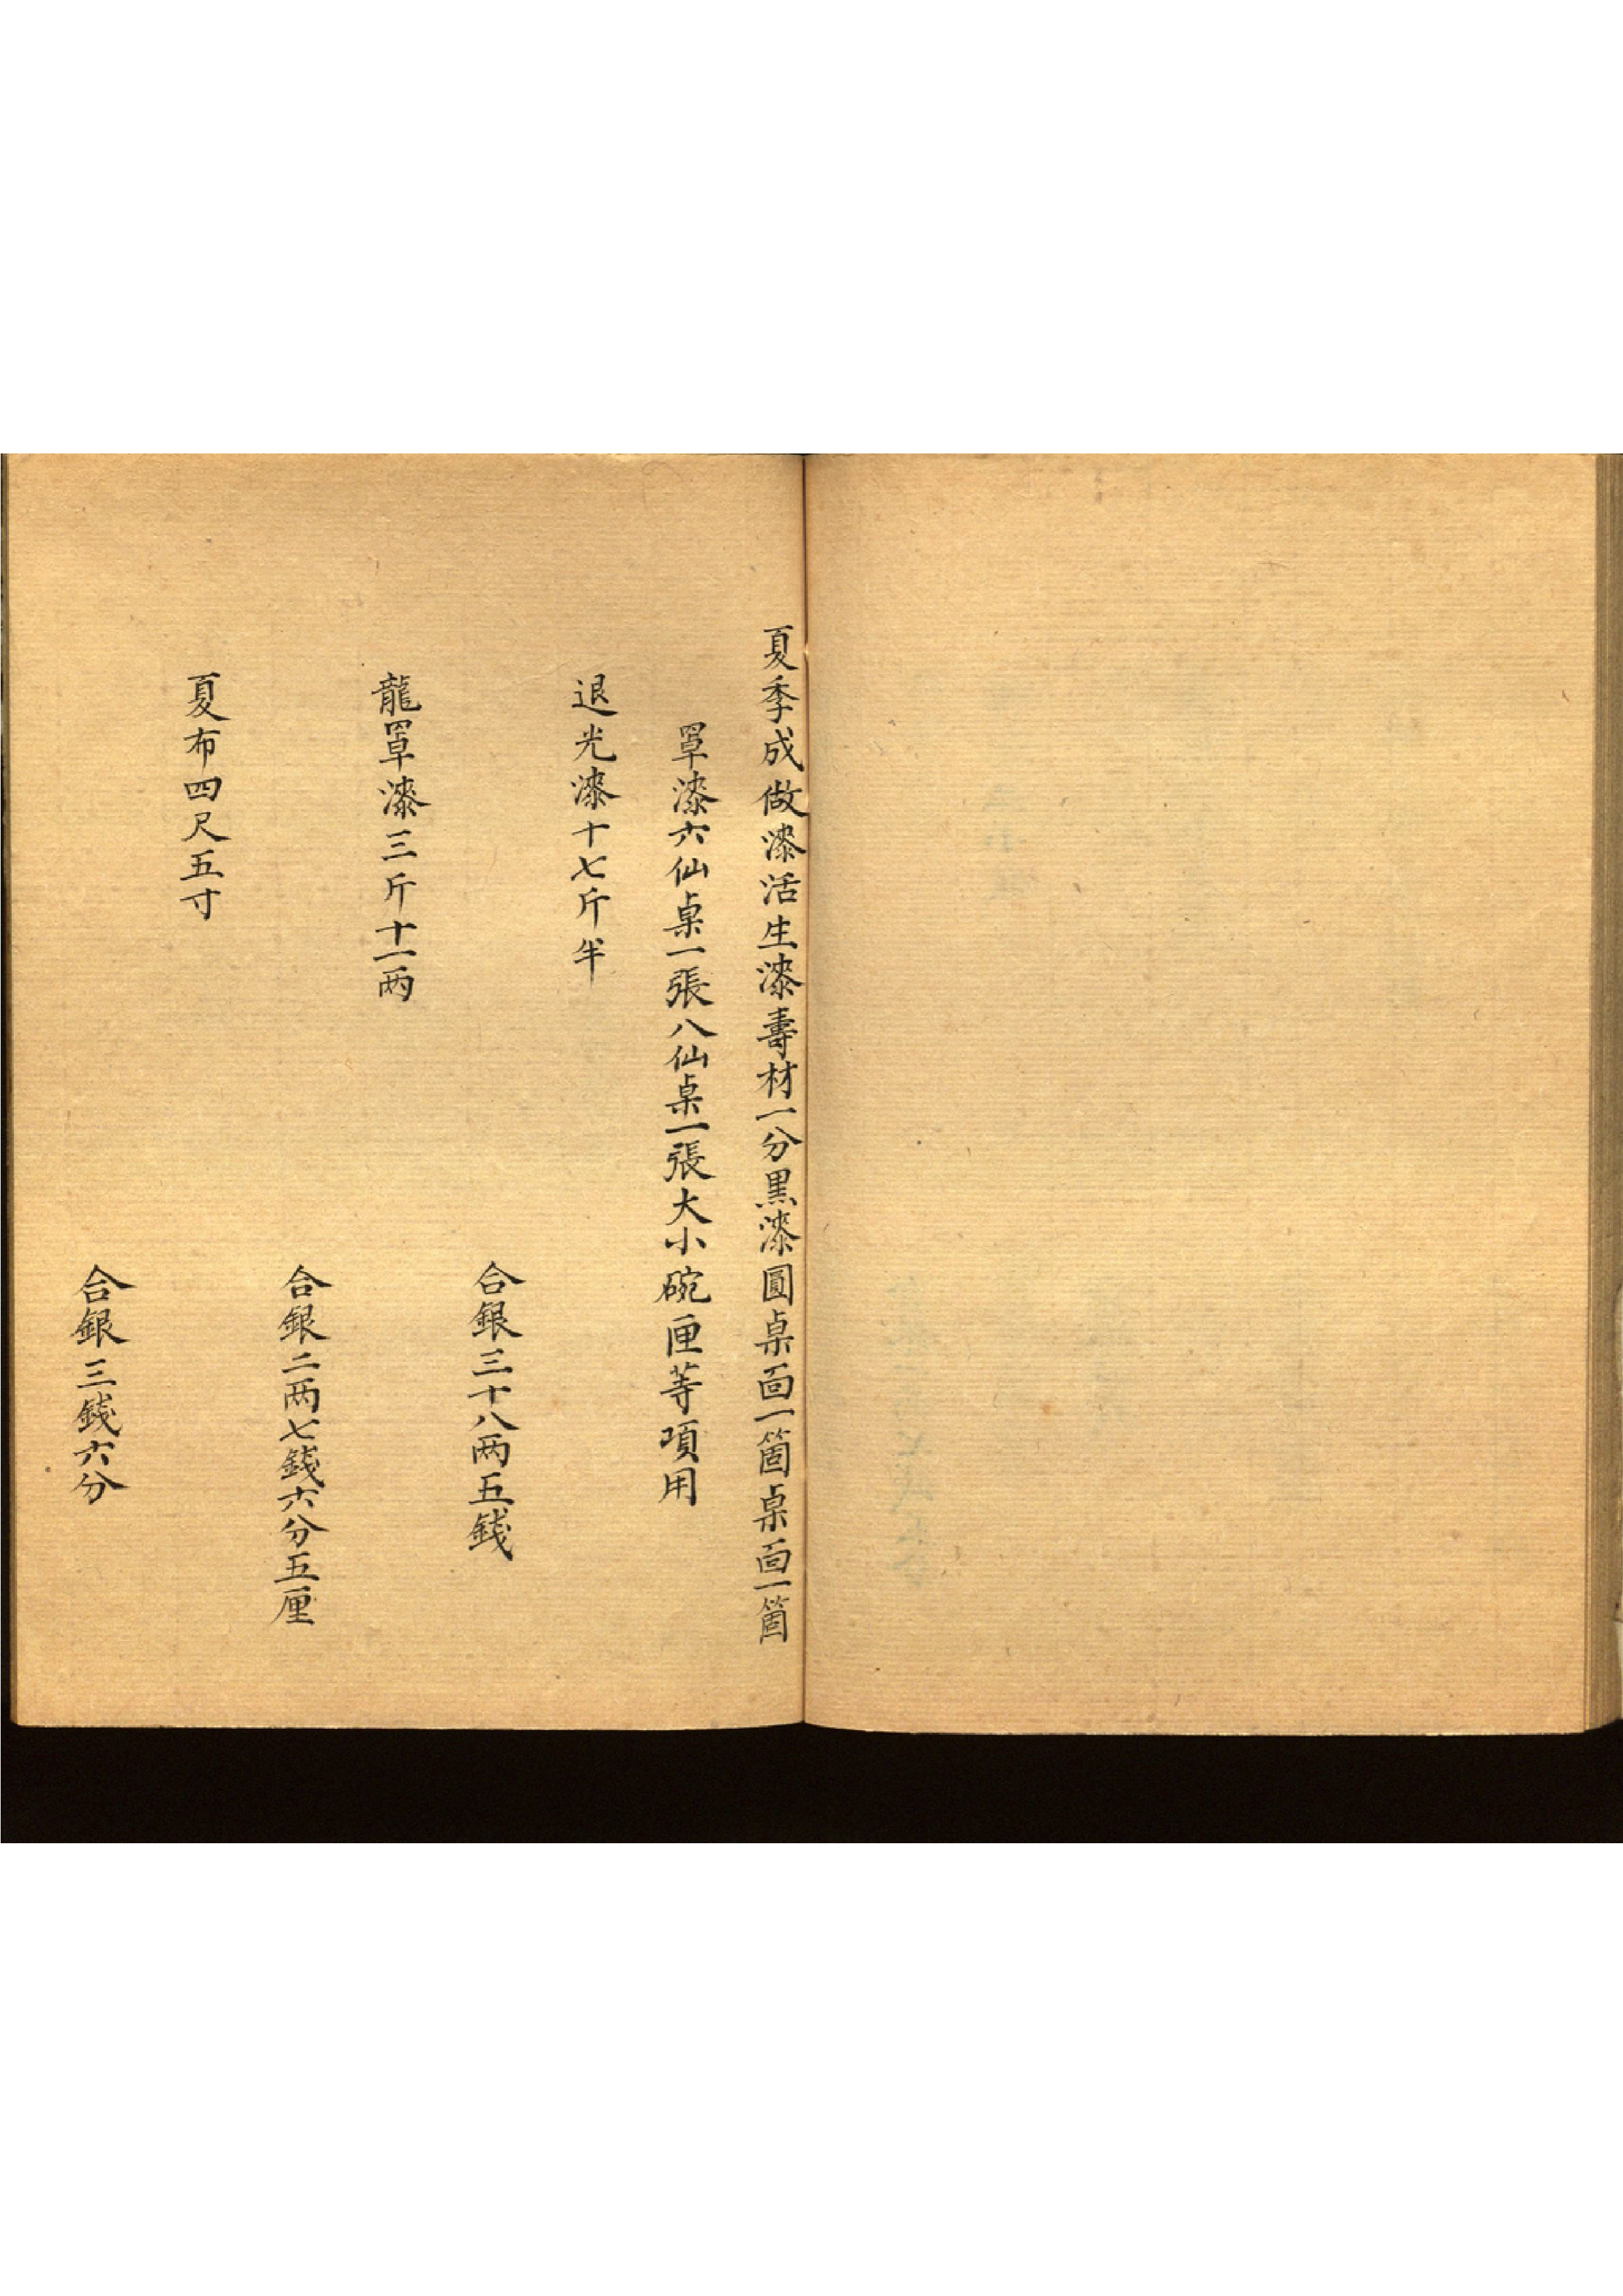 夏季成做漆活生漆壽材一分黒漆圓桌面一箇桌面一箇
罩漆六仙桌一張八仙桌一張大小碗匣等項用
退光漆十七斤半
合銀三十八两五錢
龍罩漆三斤十一两
合銀二两七錢六分五厘
夏布四尺五寸
合銀三錢六分